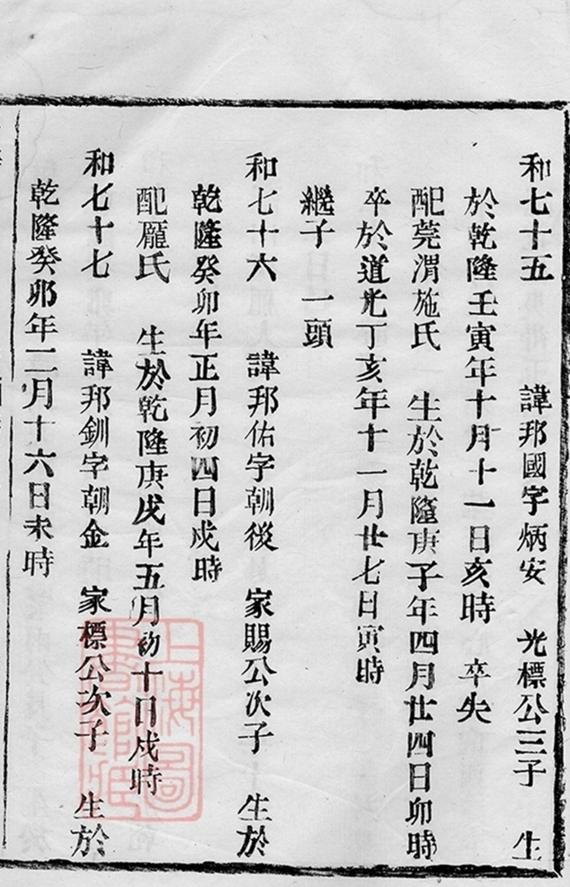 和七十五 諱邦國字炳安 光標公三子 生
於乾隆壬寅年十月十一日亥時 卒失
配莞渭施氏 生於乾隆庚子年四月廿四日卯時
卒於道光丁亥年十一月廿七日寅時
繼子 一頭
和七十六 諱邦佑字朝後 家賜公次子 生於
乾隆癸卯年正月初四日戍時
配龎氏 生於乾隆庚戌年五月初十日戍時
和七十七 諱邦釧字朝金 家標公次子 生於
乾隆癸卯年二月十六日未時
上海圖
書館藏